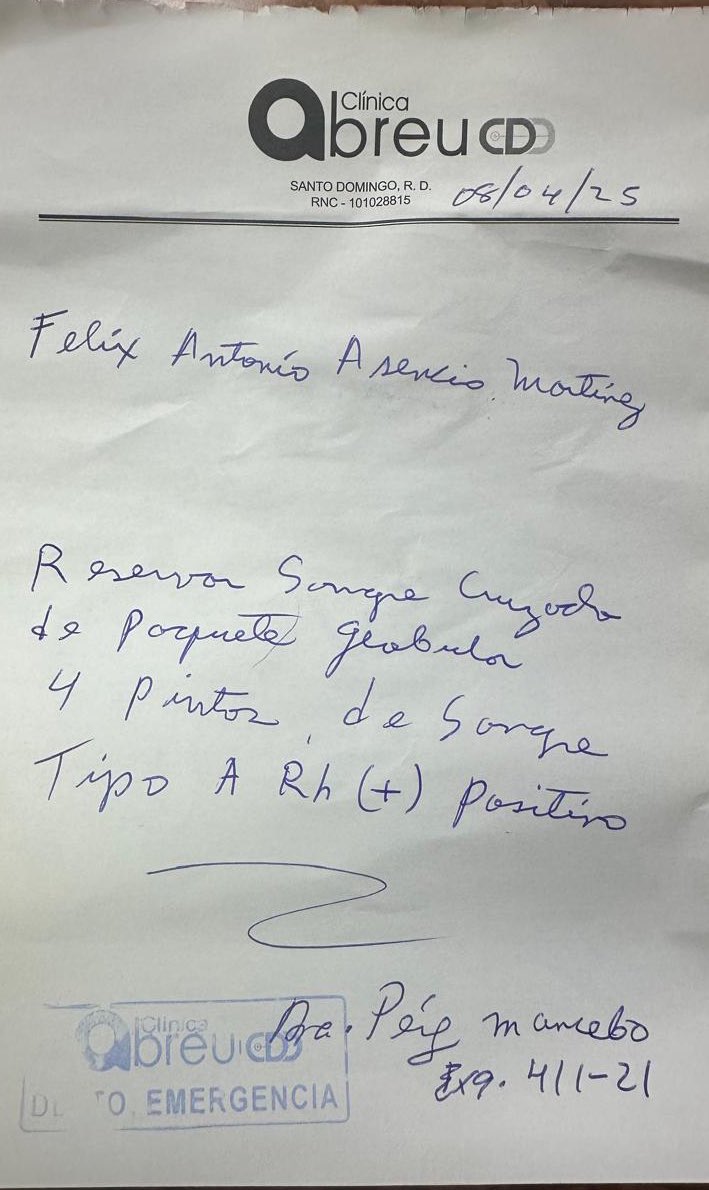 Clínica
abreu CDD
SANTO DOMINGO, R. D.
RNC - 101028815
08/04/25
Felix Antonio Asencio Martínez
Reservar Sangre Cruzada
de Paquete globular
4 Pintas de Sangre
Tipo A Rh (+) Positivo
Dra. Mancebo
Exq. 411-21
Clínica
abreu CDD
EMERGENCIA